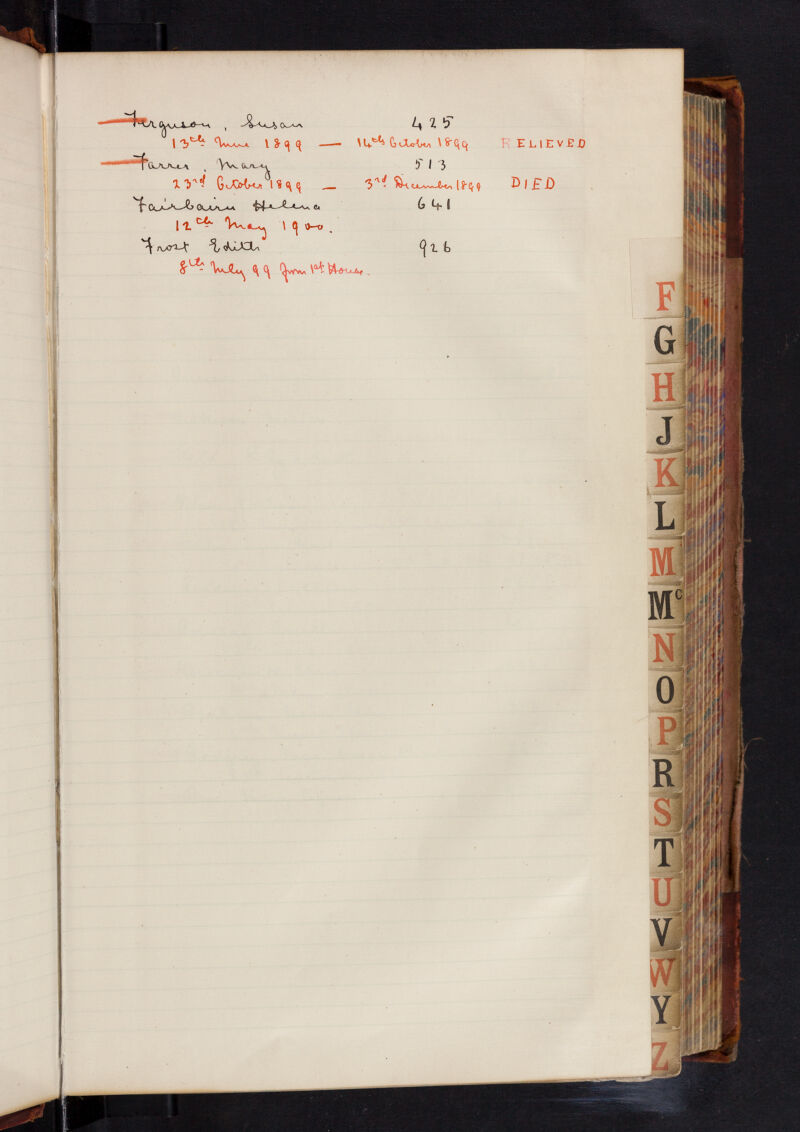 Ferguson, Susan 425
13th June 1899 — 14th October 1899 RELIEVED
Farrer, Mary 513
23rd October 1899 — 3rd December 1899 DIED
Fairbairn Helena 641
12th May 1900.
Frost Edith 926
8th July 99 from 1st House.
F
G
H
J
K
L
M
Mc
N
O
P
R
S
T
U
V
W
Y
Z